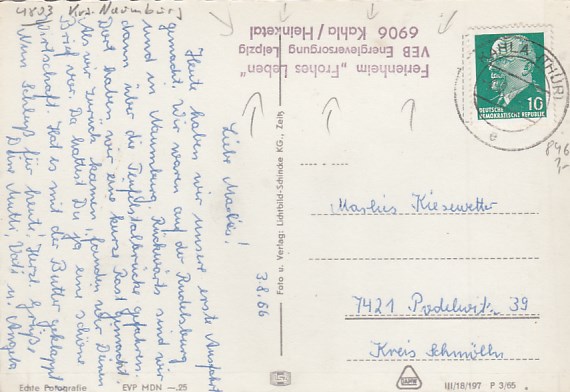 4803 Krs. Naumburg
Ferienheim „Frohes Leben"
VEB Energieversorgung Leipzig
6906 Kahla / Heinketal
KAHLA (THÜR)
e
DEUTSCHE
DEMOKRATISCHE REPUBLIK
10
3.8.66
Lieb. Markus!
Heute haben wir unsere erste Ausfahrt
gemacht. Wir waren auf der Rudelsburg
und in Naumburg. Rückwärts sind wir
dann über die Teufelstalbrücke gefahren.
Dort haben wir eine kurze Rast gemacht.
Als wir zurück kamen, fanden wir Deinen
Brief vor. Da hattest Du ja eine schöne
Wirtschaft. Hat es mit der Butter geklappt?
Nun Schluß für heute. Herzl. Grüße
Deine Mutti, Vati u. Angela
Markus Kiesewetter
7421 Podelwitz 39
Kreis Schmölln
Foto u. Verlag: Lichtbild-Schincke KG., Zeitz
Echte Fotografie
EVP MDN —.25
III/18/197 P 3/65